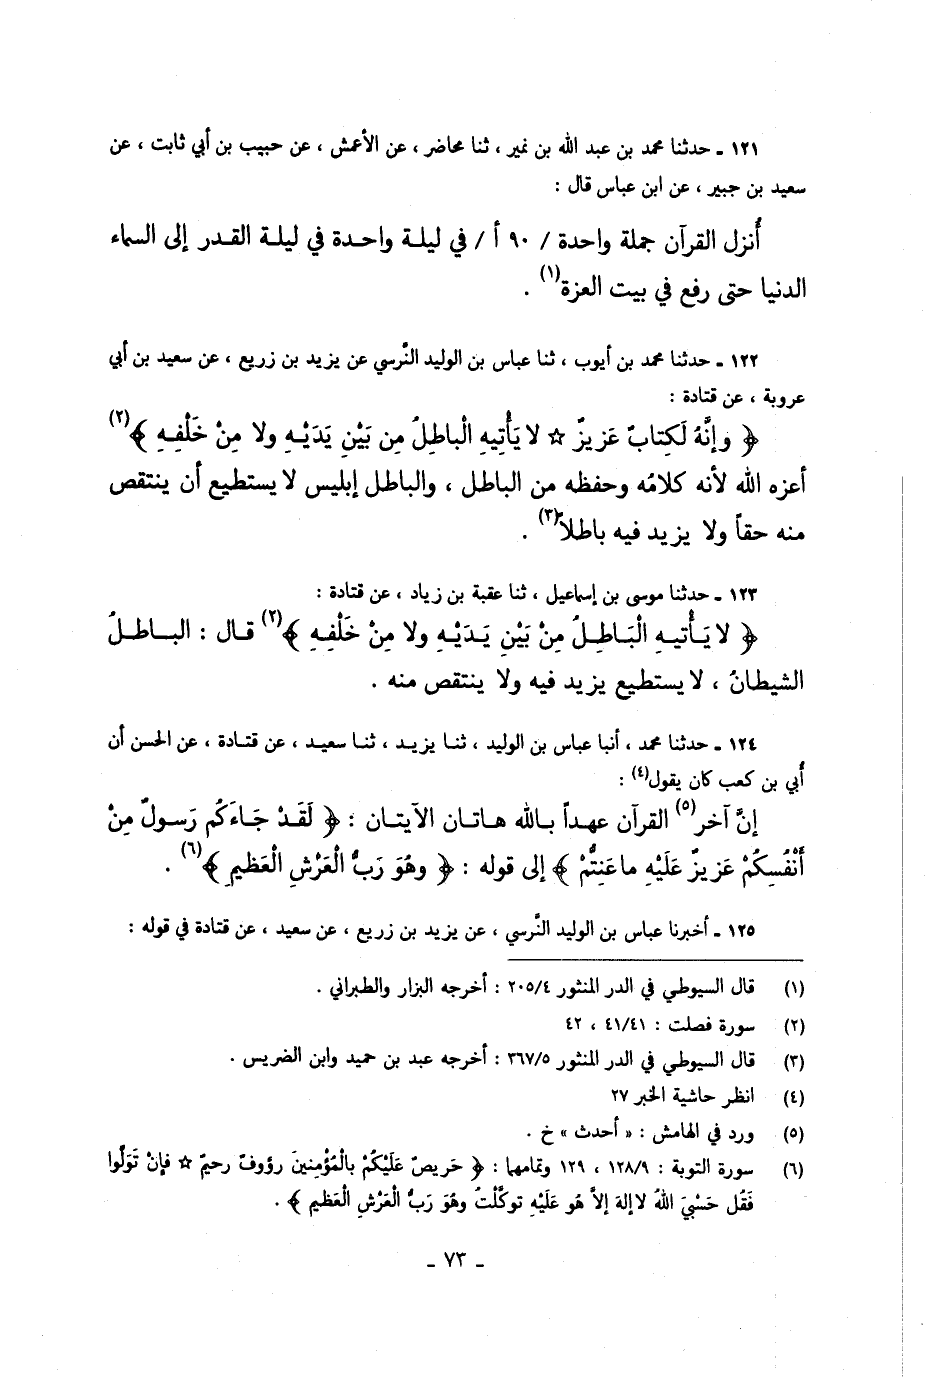 ١٢١ ـ حدثنا محمد بن عبد الله بن نمير ، ثنا محاضر ، عن الأعمش ، عن حبيب بن أبي ثابت ، عن
سعيد بن جبير ، عن ابن عباس قال :
أُنزل القرآن جملة واحدة / ٩٠ أ / في ليلة واحدة في ليلة القدر إلى السماء
الدنيا حتى رفع في بيت العزة(١) .
١٢٢ ـ حدثنا محمد بن أيوب ، ثنا عباس بن الوليد النَّرسي عن يزيد بن زريع ، عن سعيد بن أبي
عروبة ، عن قتادة :
﴿ وإنَّهُ لَكِتابٌ عَزيزٌ ☆ لا يَأْتِيهِ الْباطِلُ مِن بَيْنِ يَدَيْهِ ولا مِنْ خَلْفِهِ ﴾(٢)
أعزه الله لأنه كلامُه وحفظه من الباطل ، والباطل إبليس لا يستطيع أن ينتقص
منه حقاً ولا يزيد فيه باطلاً(٣) .
١٢٣ ـ حدثنا موسى بن إسماعيل ، ثنا عقبة بن زياد ، عن قتادة :
﴿ لا يَأْتيهِ الْبَاطِلُ مِنْ بَيْنِ يَدَيْهِ ولا مِنْ خَلْفِهِ ﴾(٢) قال : الباطلُ
الشيطانُ ، لا يستطيع يزيد فيه ولا ينتقص منه .
١٢٤ ـ حدثنا محمد ، أنبا عباس بن الوليد ، ثنا يزيد ، ثنا سعيد ، عن قتادة ، عن الحسن أن
أُبي بن كعب كان يقول(٤) :
إنَّ آخر(٥) القرآن عهداً بالله هاتان الآيتان : ﴿ لَقَدْ جَاءَكُم رَسولٌ مِنْ
أَنْفُسِكُمْ عَزيزٌ عَلَيْهِ ما عَنِتُّمْ ﴾ إلى قوله : ﴿ وهُوَ رَبُّ الْعَرْشِ الْعَظيمِ ﴾(٦) .
١٢٥ ـ أخبرنا عباس بن الوليد النَّرسي ، عن يزيد بن زريع ، عن سعيد ، عن قتادة في قوله :
(١) قال السيوطي في الدر المنثور ٢٠٥/٤ : أخرجه البزار والطبراني .
(٢) سورة فصلت : ٤١/٤١ ، ٤٢
(٣) قال السيوطي في الدر المنثور ٣٦٧/٥ : أخرجه عبد بن حميد وابن الضريس .
(٤) انظر حاشية الخبر ٢٧
(٥) ورد في الهامش : « أحدث » خ .
(٦) سورة التوبة : ١٢٨/٩ ، ١٢٩ وتمامها : ﴿ حَريصٌ عَلَيْكُمْ بالْمُؤْمِنينَ رؤوفٌ رحيمٌ ☆ فإنْ تَوَلَّوا
فَقُل حَسْبِيَ اللهُ لا إلهَ إلاَّ هُو عَلَيْهِ توكَّلْتُ وهُوَ رَبُّ الْعَرْشِ الْعَظيمِ ﴾ .
ـ ٧٣ ـ